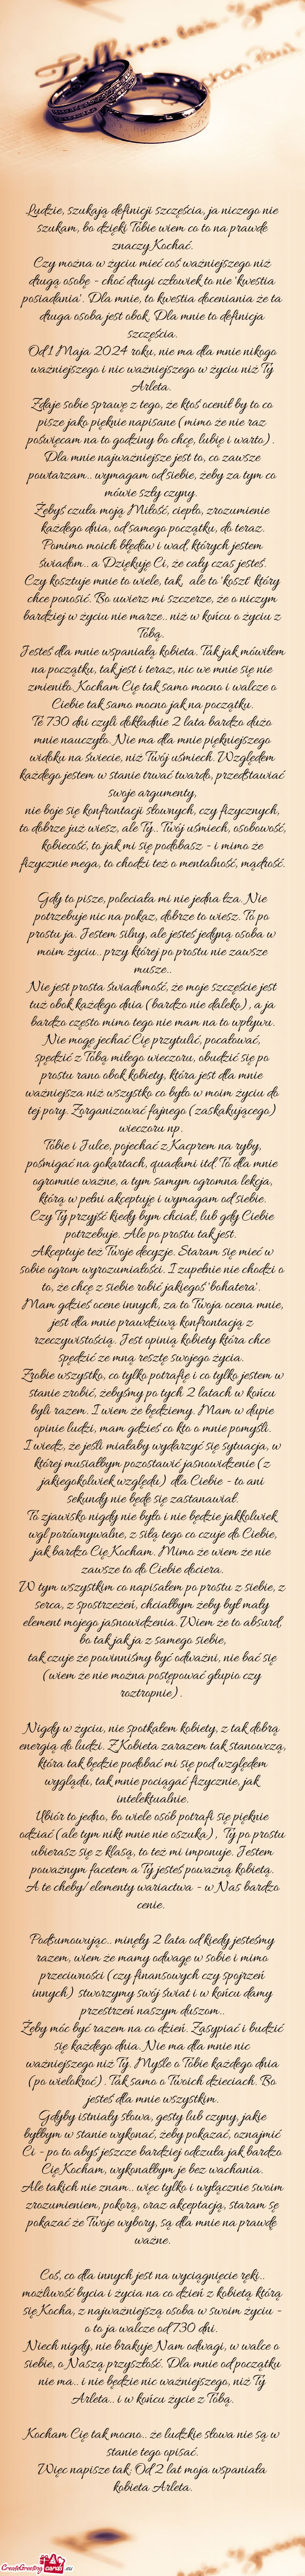 Ludzie, szukają definicji szczęścia, ja niczego nie
szukam, bo dzięki Tobie wiem co to na prawdę
znaczy Kochać.
Czy można w życiu mieć coś ważniejszego niż
drugą osobę - choć drugi człowiek to nie 'kwestia
posiadania'. Dla mnie, to kwestia doceniania że ta
druga osoba jest obok. Dla mnie to definicja
szczęścia.
Od 1 Maja 2024 roku, nie ma dla mnie nikogo
ważniejszego i nic ważniejszego w życiu niż Ty
Arleta.
Zdaje sobie sprawę z tego, że ktoś ocenił by to co
pisze jako pięknie napisane (mimo że nie raz
poświęcam na to godziny bo chcę, lubię i warto).
Dla mnie najważniejsze jest to, co zawsze
powtarzam.. wymagam od siebie, żeby za tym co
mówie szły czyny.
Żebyś czuła moją Miłość, ciepło, zrozumienie
każdego dnia, od samego początku, do teraz.
Pomimo moich błędów i wad, których jestem
świadom.. a Dziękuję Ci, że cały czas jesteś.
Czy kosztuje mnie to wiele, tak, ale to 'koszt' który
chce ponosić. Bo uwierz mi szczerze, że o niczym
bardziej w życiu nie marze.. niż w końcu o życiu z
Tobą.
Jesteś dla mnie wspaniałą kobieta. Tak jak mówiłem
na początku, tak jest i teraz, nic we mnie się nie
zmieniło. Kocham Cię tak samo mocno i walcze o
Ciebie tak samo mocno jak na początku.
Te 730 dni czyli dokładnie 2 lata bardzo dużo
mnie nauczyło. Nie ma dla mnie piękniejszego
widoku na świecie, niż Twój uśmiech. Względem
każdego jestem w stanie trwać twardo, przedstawiać
swoje argumenty,
nie boje się konfrontacji słownych, czy fizycznych,
to dobrze już wiesz, ale Ty.. Twój uśmiech, osobowość,
kobiecość, to jak mi się podobasz - i mimo że
fizycznie mega, to chodzi też o mentalność, mądrość.
Gdy to pisze, poleciała mi nie jedna łza. Nie
potrzebuje nic na pokaz, dobrze to wiesz. To po
prostu ja. Jestem silny, ale jesteś jedyną osoba w
moim życiu.. przy której po prostu nie zawsze
musze..
Nie jest prosta świadomość, że moje szczęście jest
tuż obok każdego dnia (bardzo nie daleko), a ja
bardzo często mimo tego nie mam na to wpływu.
Nie mogę jechać Cię przytulić, pocałować,
spędzić z Tobą miłego wieczoru, obudzić się po
prostu rano obok kobiety, która jest dla mnie
ważniejsza niż wszystko co było w moim życiu do
tej pory. Zorganizować fajnego (zaskakującego)
wieczoru np.
Tobie i Julce, pojechać z Kacprem na ryby,
pośmigać na gokartach, quadami itd. To dla mnie
ogromnie ważne, a tym samym ogromna lekcja,
którą w pełni akceptuję i wymagam od siebie.
Czy Ty przyjść kiedy bym chciał, lub gdy Ciebie
potrzebuje. Ale po prostu tak jest.
Akceptuje też Twoje decyzje. Staram się mieć w
sobie ogrom wyrozumiałości. I zupełnie nie chodzi o
to, że chcę z siebie robić jakiegoś 'bohatera'.
Mam gdzieś ocene innych, za to Twoja ocena mnie,
jest dla mnie prawdziwą konfrontacją z
rzeczywistością. Jest opinią kobiety która chce
spędzić ze mną resztę swojego życia.
Zrobie wszystko, co tylko potrafię i co tylko jestem w
stanie zrobić, żebyśmy po tych 2 latach w końcu
byli razem. I wiem że będziemy. Mam w dupie
opinie ludzi, mam gdzieś co kto o mnie pomyśli.
I wiedz, że jeśli miałaby wydarzyć się sytuacja, w
której musiałbym pozostawić jasnowidzenie (z
jakiegokolwiek względu) dla Ciebie - to ani
sekundy nie będę się zastanawiał.
To zjawisko nigdy nie było i nie będzie jakkolwiek
wgl porównywalne, z siłą tego co czuje do Ciebie,
jak bardzo Cię Kocham. Mimo że wiem że nie
zawsze to do Ciebie dociera.
W tym wszystkim co napisałem po prostu z siebie, z
serca, z spostrzeżeń, chciałbym żeby był mały
element mojego jasnowidzenia. Wiem że to absurd,
bo tak jak ja z samego siebie,
tak czuje że powinniśmy być odważni, nie bać się
(wiem że nie można postępować głupio czy
roztropnie).
Nigdy w życiu, nie spotkałem kobiety, z tak dobrą
energią do ludzi. Z Kobieta zarazem tak stanowczą,
która tak będzie podobać mi się pod względem
wyglądu, tak mnie pociągać fizycznie, jak
intelektualnie.
Ubiór to jedno, bo wiele osób potrafi się pięknie
odziać (ale tym nikt mnie nie oszuka), Ty po prostu
ubierasz się z klasą, to też mi imponuje. Jestem
poważnym facetem a Ty jesteś poważną kobietą.
A te cheby/elementy wariactwa - w Nas bardzo
cenie.
Podsumowując.. minęły 2 lata od kiedy jesteśmy
razem, wiem że mamy odwagę w sobie i mimo
przeciwności (czy finansowych czy spojrzeń
innych) stworzymy swój świat i w końcu damy
przestrzeń naszym duszom..
Żeby móc być razem na co dzień. Zasypiać i budzić
się każdego dnia. Nie ma dla mnie nic
ważniejszego niż Ty. Myśle o Tobie każdego dnia
(po wielokroć). Tak samo o Twoich dzieciach. Bo
jesteś dla mnie wszystkim.
Gdyby istniały słowa, gesty lub czyny, jakie
byłbym w stanie wykonać, żeby pokazać, oznajmić
Ci - po to abyś jeszcze bardziej odczuła jak bardzo
Cię Kocham, wykonałbym je bez wachania.
Ale takich nie znam.. więc tylko i wyłącznie swoim
zrozumieniem, pokorą, oraz akceptacją, staram się
pokazać że Twoje wybory, są dla mnie na prawdę
ważne.
Coś, co dla innych jest na wyciągnięcie ręki..
możliwość bycia i życia na co dzień z kobietą którą
się Kocha, z najważniejszą osoba w swoim życiu -
o to ja walcze od 730 dni.
Niech nigdy, nie brakuje Nam odwagi, w walce o
siebie, o Naszą przyszłość. Dla mnie od początku
nie ma.. i nie będzie nic ważniejszego, niż Ty
Arleta.. i w końcu życie z Tobą.
Kocham Cię tak mocno.. że ludzkie słowa nie są w
stanie tego opisać.
Więc napisze tak. Od 2 lat moja wspaniała
kobieta Arleta.
CreateGreetingcards.eu